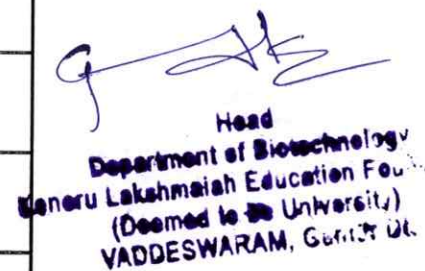 Head
Department of Biotechnology
Koneru Lakshmaiah Education Fou
(Deemed to be University)
VADDESWARAM, Guntur Dt.